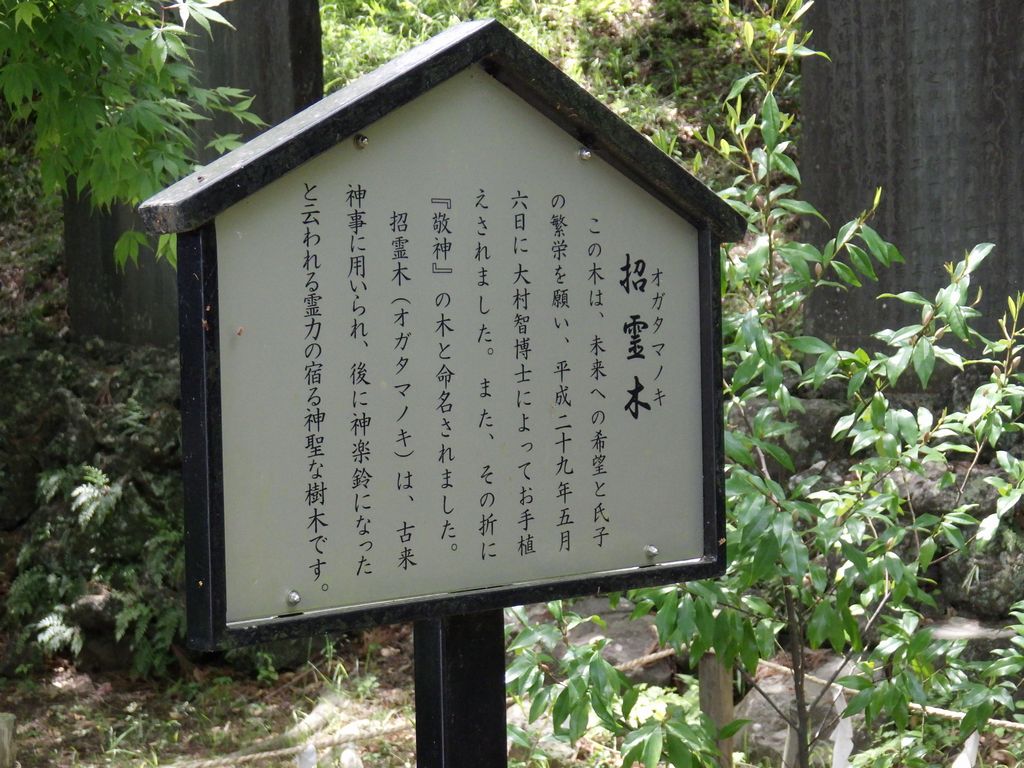 オガタマノキ
招霊木
この木は、未来への希望と氏子
の繁栄を願い、平成二十九年五月
六日に大村智博士によってお手植
えされました。また、その折に
『敬神』の木と命名されました。
招霊木（オガタマノキ）は、古来
神事に用いられ、後に神楽鈴になった
と云われる霊力の宿る神聖な樹木です。